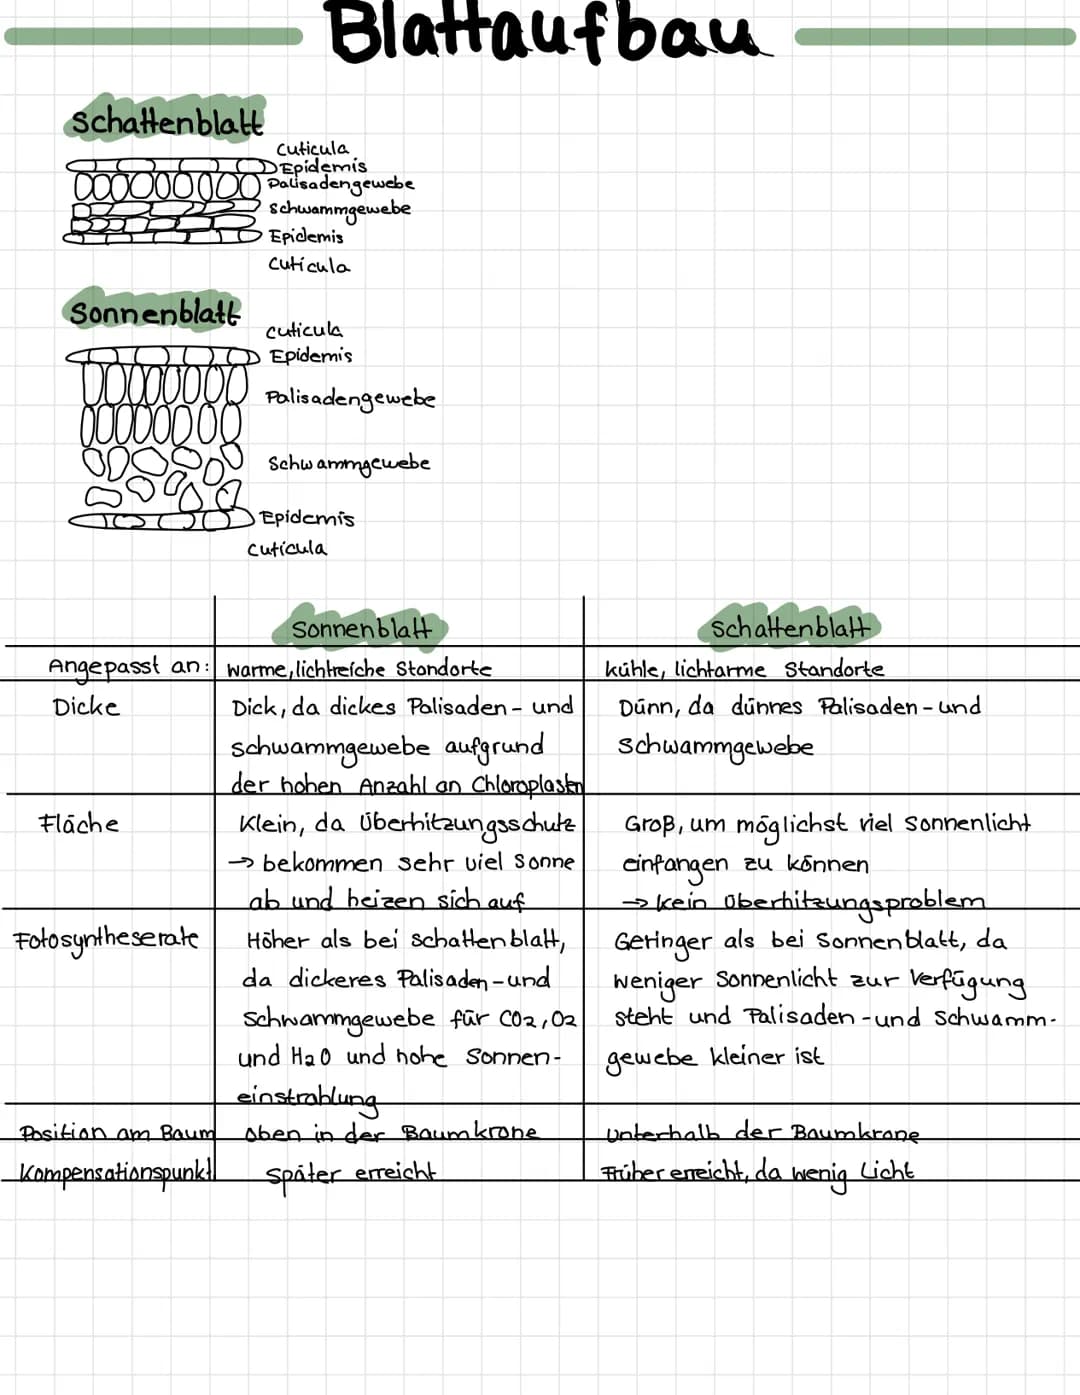 Blattaufbau
Schattenblatt
Cuticula
Epidemis
Palisadengewebe
Schwammgewebe
Epidemis
Cuticula
Sonnenblatt
Cuticula
Epidemis
Palisadengewebe
Schwammgewebe
Epidemis
Cuticula
Sonnenblatt Schattenblatt
Angepasst an: warme, lichtreiche Standorte kühle, lichtarme Standorte
Dicke Dick, da dickes Palisaden- und Dünn, da dünnes Palisaden-und
Schwammgewebe aufgrund Schwammgewebe
der hohen Anzahl an Chloroplasten
Fläche Klein, da Überhitzungsschutz Groß, um möglichst viel Sonnenlicht
→ bekommen sehr viel Sonne einfangen zu können
ab und heizen sich auf → kein Überhitzungsproblem
Fotosyntheserate Höher als bei Schattenblatt, Geringer als bei Sonnenblatt, da
da dickeres Palisaden-und weniger Sonnenlicht zur Verfügung
Schwammgewebe für CO2, O2 steht und Palisaden-und Schwamm-
und H2O und hohe Sonnen- gewebe kleiner ist
einstrahlung
Position am Baum Oben in der Baumkrone Unterhalb der Baumkrone
Kompensationspunkt Später erreicht Früher erreicht, da wenig Licht